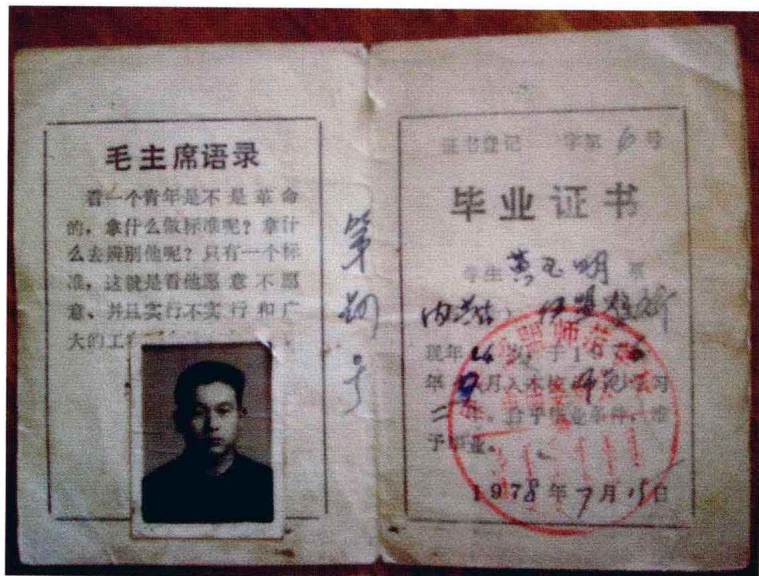 毛主席语录
看一个青年是不是革命
的，拿什么做标准呢？拿什
么去辨别他呢？只有一个标
准，这就是看他愿意不愿
意、并且实行不实行和广
大的工
第 号
证书登记 字第6号
毕业证书
学生 明 系
内蒙古
现年26岁，于197
年9月入本校 学习
二年，合乎毕业条件，准
予毕业。
1978年7月15日
盟师范